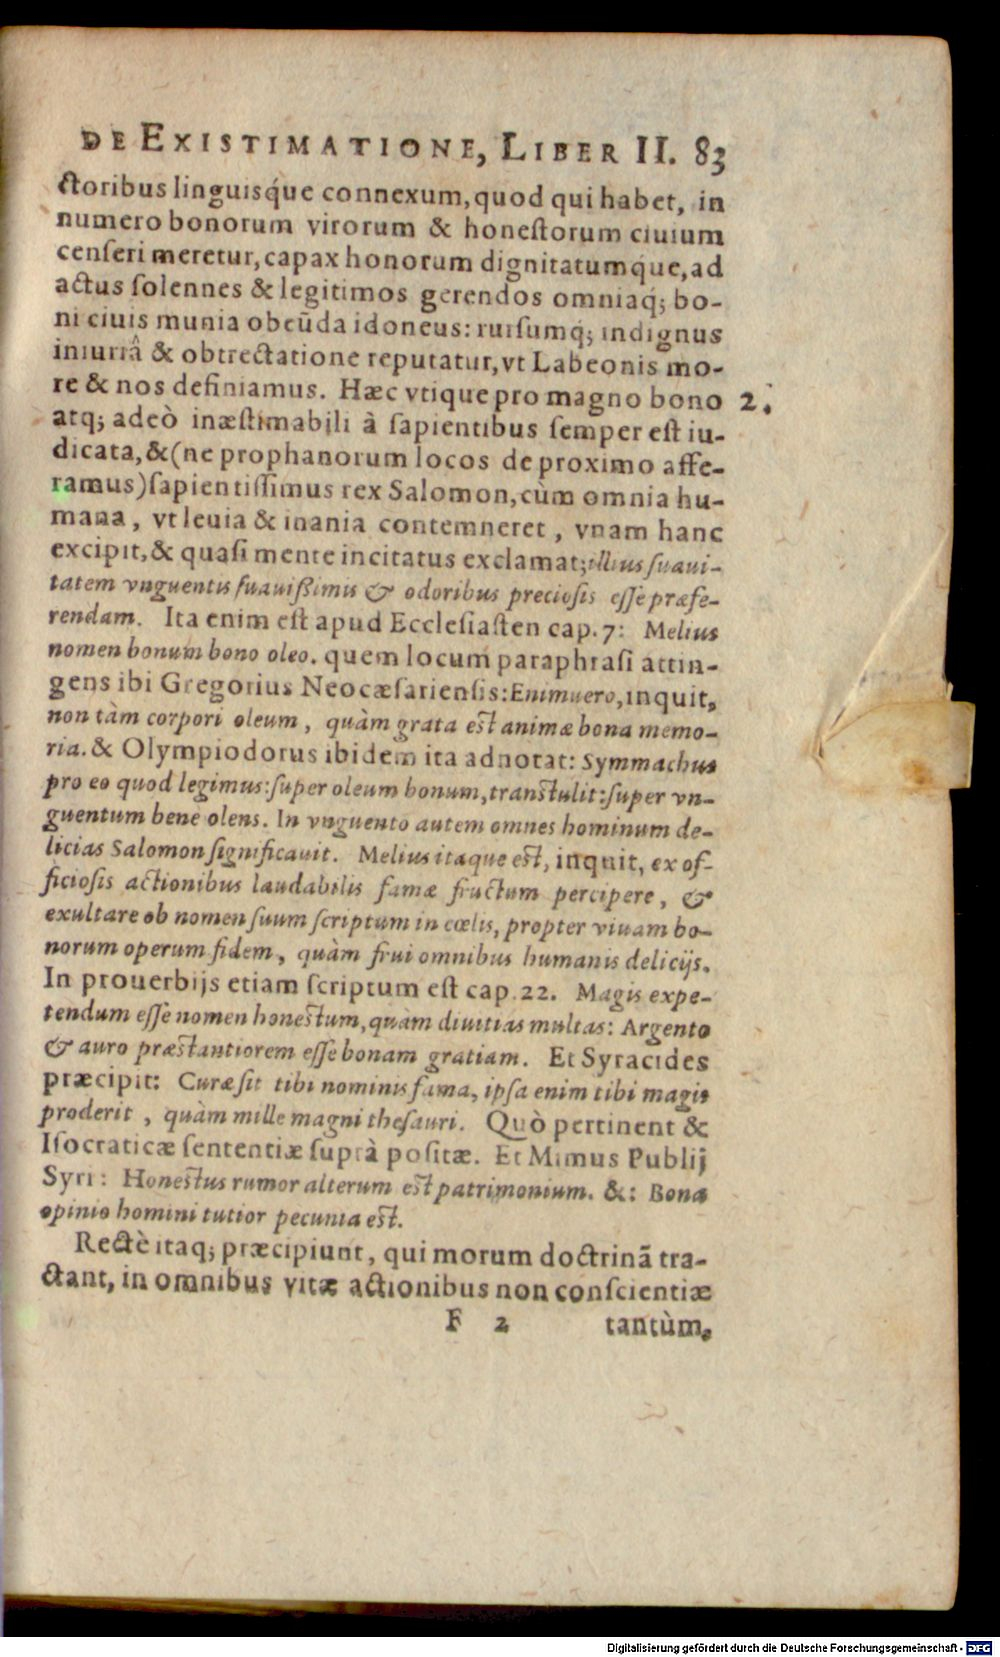 DE EXISTIMATIONE, LIBER II. 83
ctoribus linguisq́ue connexum, quod qui habet, in
numero bonorum virorum & honeſtorum ciuium
cenſeri meretur, capax honorum dignitatumq́ue, ad
actus ſolennes & legitimos gerendos omniaq́; bo-
ni ciuis munia obeūda idoneus: rurſumq́; indignus
iniuriâ & obtrectatione reputatur, vt Labeonis mo-
re & nos definiamus. Hæc vtique pro magno bono 2.
atq; adeò inæſtimabili à ſapientibus ſemper eſt iu-
dicata, & (ne prophanorum locos de proximo affe-
ramus) ſapientiſſimus rex Salomon, cùm omnia hu-
mana, vt leuia & inania contemneret, vnam hanc
excipit, & quaſi mente incitatus exclamat; illius ſuaui-
tatem vnguentis ſuauiſſimis & odoribus precioſis eſſe præfe-
rendam. Ita enim eſt apud Eccleſiaſten cap. 7: Melius
nomen bonum bono oleo. quem locum paraphraſi attin-
gens ibi Gregorius Neocæſarienſis: Enimuero, inquit,
non tàm corpori oleum, quàm grata eſt animæ bona memo-
ria. & Olympiodorus ibidem ita adnotat: Symmachus
pro eo quod legimus: ſuper oleum bonum, tranſtulit: ſuper vn-
guentum bene olens. In vnguento autem omnes hominum de-
licias Salomon ſignificauit. Melius itaque eſt, inquit, ex of-
ficioſis actionibus laudabilis famæ fructum percipere, &
exultare ob nomen ſuum ſcriptum in cœlis, propter viuam bo-
norum operum fidem, quàm frui omnibus humanis delicijs.
In prouerbijs etiam ſcriptum eſt cap. 22. Magis expe-
tendum eſſe nomen honeſtum, quàm diuitias multas: Argento
& auro præſtantiorem eſſe bonam gratiam. Et Syracides
præcipit: Curæ ſit tibi nominis fama, ipſa enim tibi magis
proderit, quàm mille magni theſauri. Quò pertinent &
Iſocraticæ ſententiæ ſuprà poſitæ. Et Mimus Publij
Syri: Honeſtus rumor alterum eſt patrimonium. &: Bona
opinio homini tutior pecunia eſt.
Rectè itaq; præcipiunt, qui morum doctrinā tra-
ctant, in omnibus vitæ actionibus non conſcientiæ
F 2 tantùm,
Digitalisierung gefördert durch die Deutsche Forschungsgemeinschaft - DFG